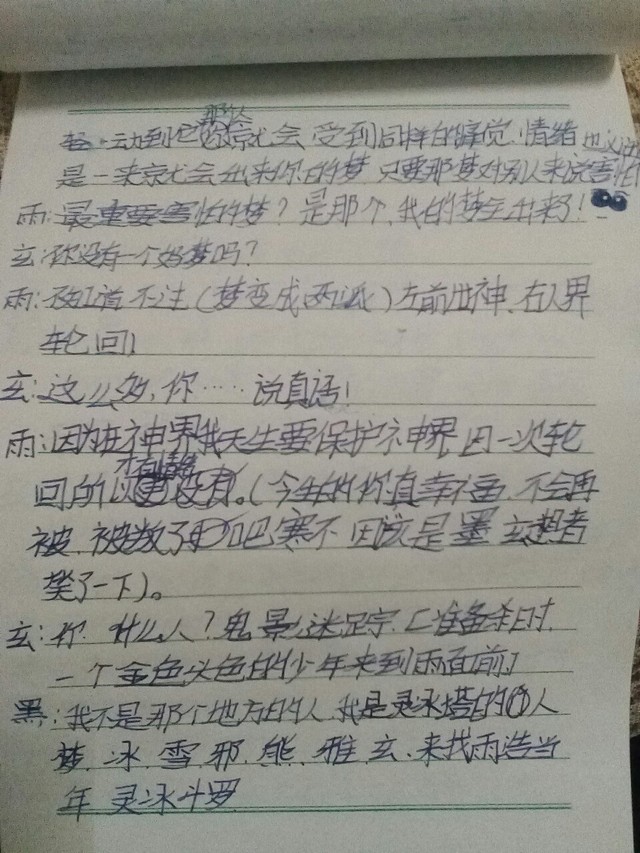 那么
一动到它你就会受到同样的睡觉.情绪也
是一来就会出来你的梦只要那梦对别人来说害怕
雨:最重要害怕的梦?是那个,我的梦全出来了!
玄:你没有一个好梦吗?
雨:不知道不注(梦变成两派)左前世神.右人界
轮回)
玄:这么多,你……说真话!
雨:因为在神界我天生要保护神界,因一次轮
回的以没有。(今生的你真幸福.不会再
被.被数了吧寒不因该是墨玄想着
笑了一下)。
玄:你.什么人?鬼影迷踪.(准备杀时.
一个金色头色的少年来到雨面前了
黑:我不是那个地方的人.我是灵冰塔的人
梦.冰.雪.邪.熊.雅.玄.来找雨浩当
年灵冰斗罗